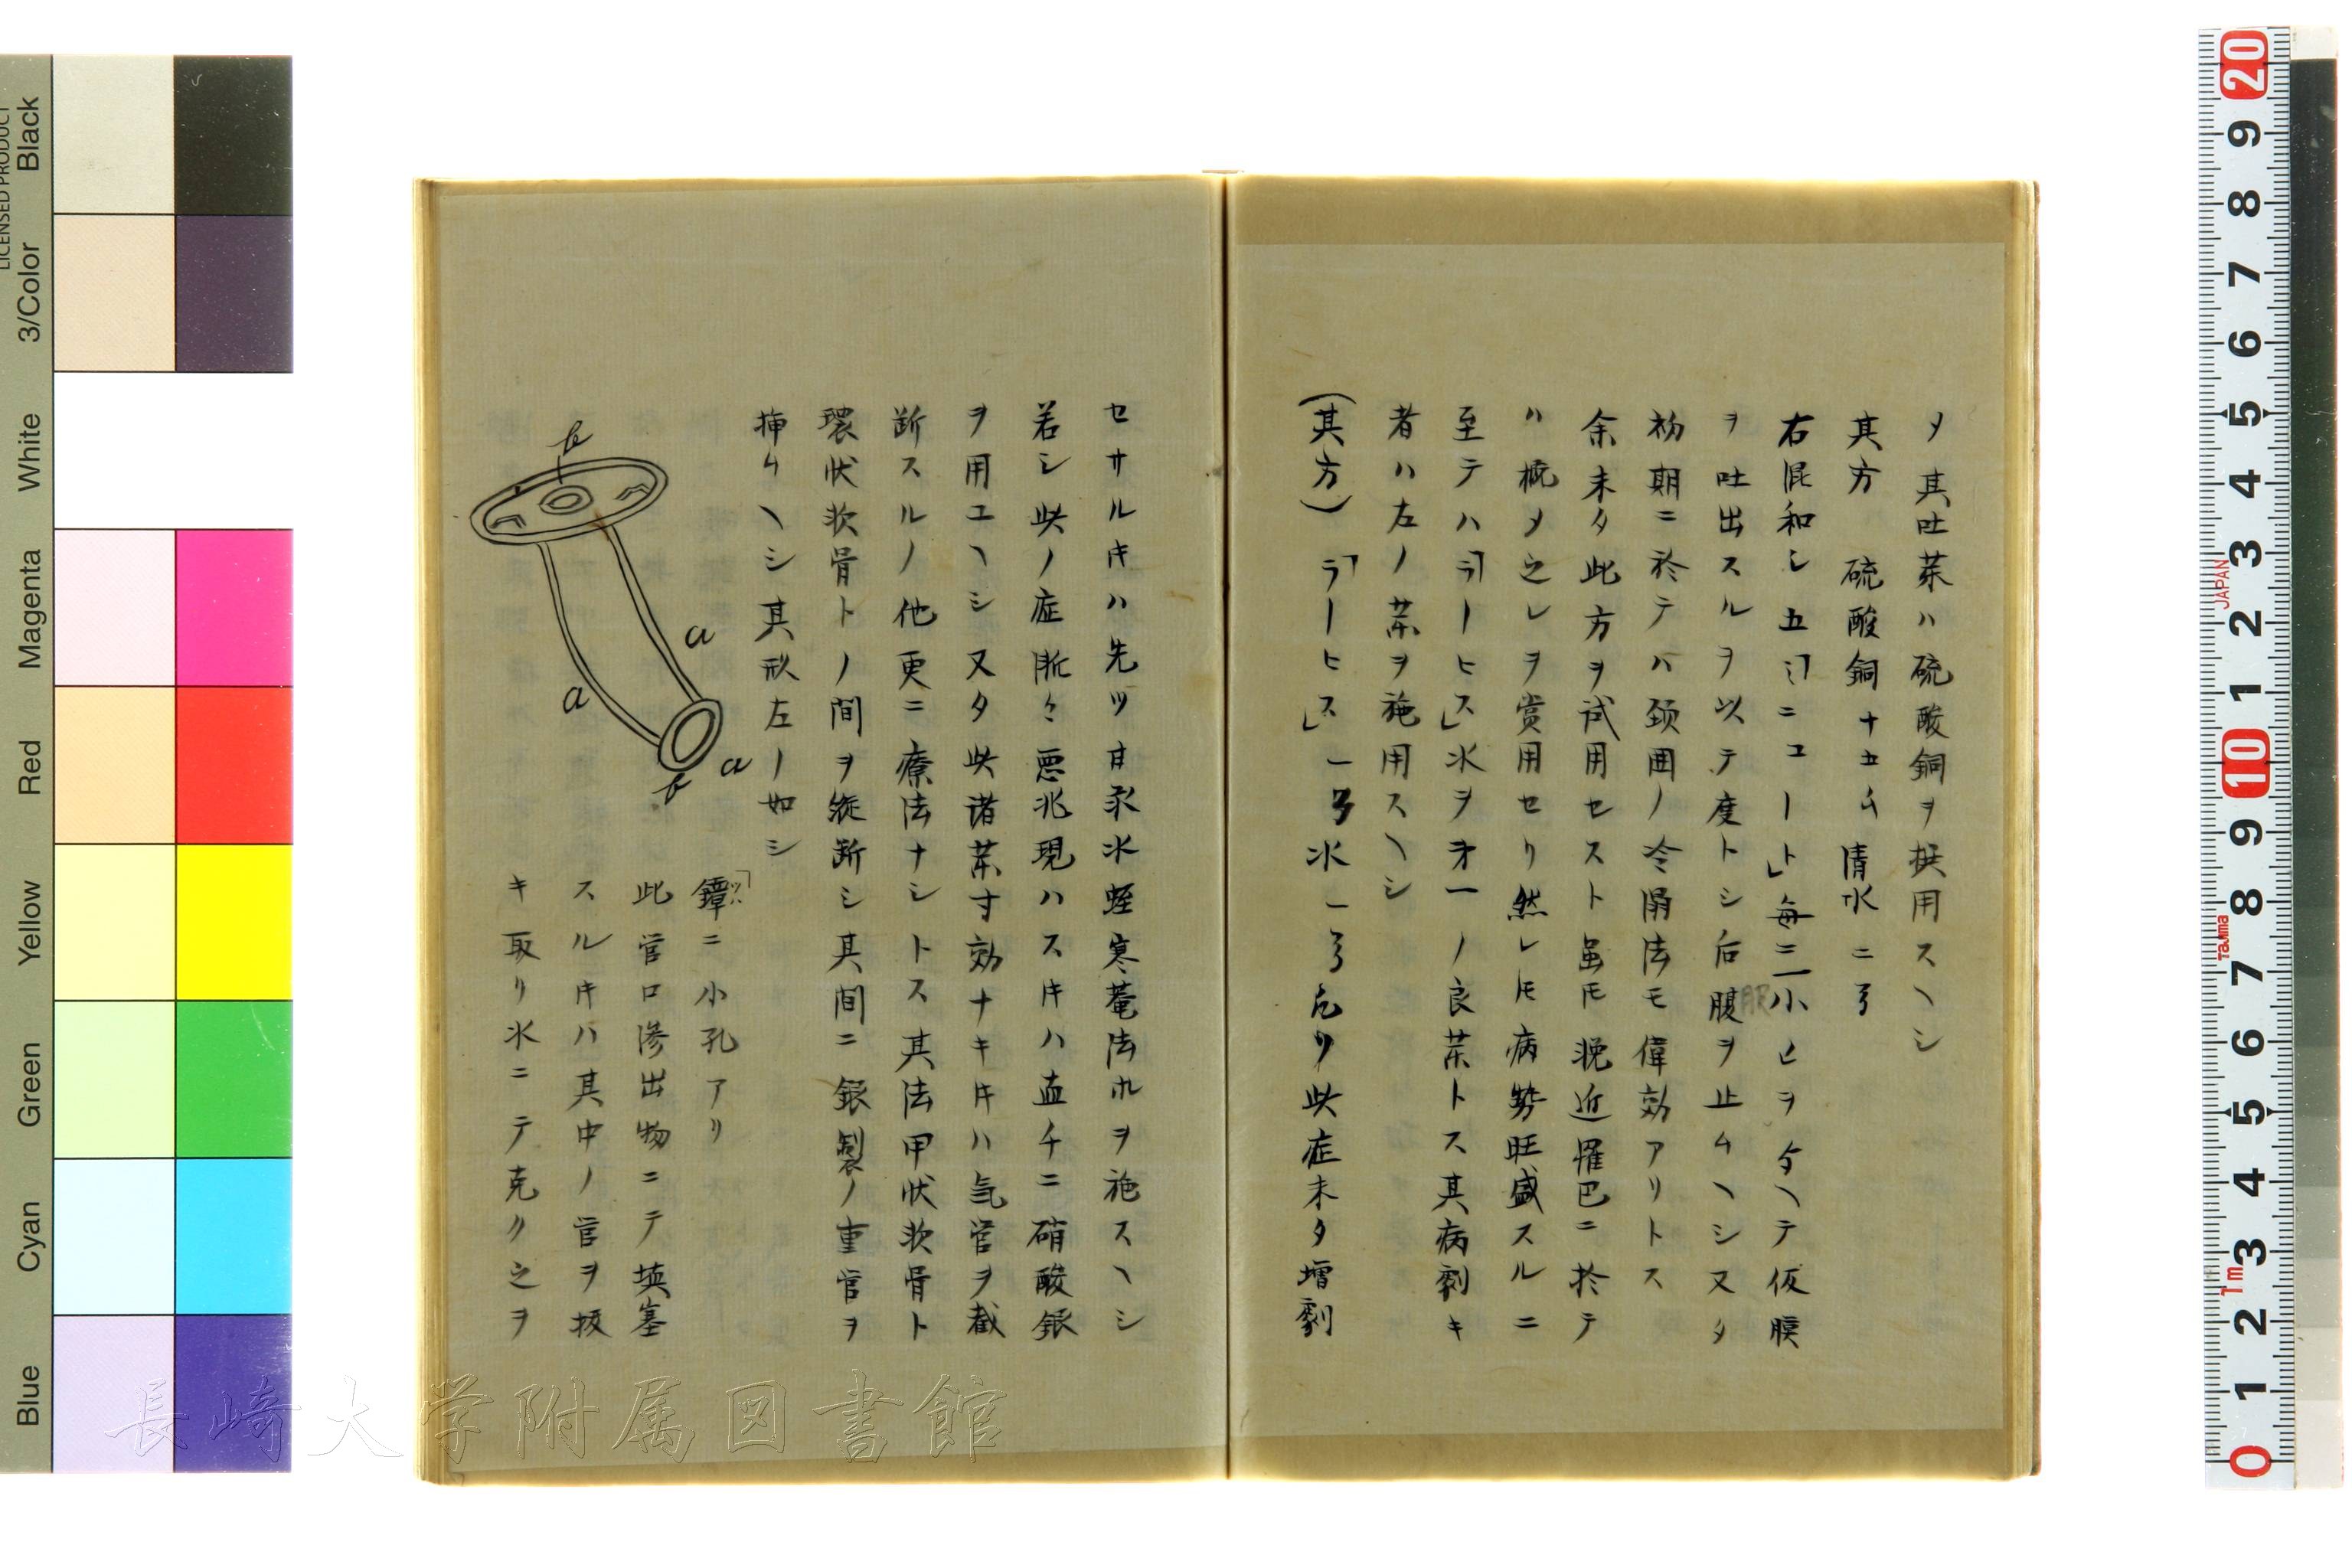 メ其吐茉ハ硫酸銅ヲ撰用スヘシ
其方 硫酸銅十五ム 清水二ゟ
右混和シ五「ミニユート」毎二一小ヒヲ与ヘテ仮膜
ヲ吐出スルヲ以テ度トシ后腹ヲ止ムヘシ又タ
服
初期ニ於テハ頚囲ノ冷溻法モ偉効アリトス
余未タ此方ヲ試用セスト虽𪜈晩近𱁬巴ニ於テ
ハ概メ之レヲ賞用セリ然レ𪜈病勢旺盛スルニ
至テハ「ラーヒス」水ヲ㐧一ノ良茉トス其病劇キ
者ハ左ノ茉ヲ施用スヘシ
(其方)「ラーヒス」一 水一 右 此症未タ増劇
セサルキハ先ツ甘汞水蛭寒菴法ホヲ施スヘシ
若シ此ノ症漸々悪兆現ハスキハ直チニ硝酸銀
ヲ用ユヘシ又タ此诸茉寸効ナキキハ気管ヲ截
断スルノ他更ニ療法ナシトス其法甲状軟骨ト
環状軟骨トノ間ヲ縦断シ其間ニ銀製ノ重管ヲ
挿ムヘシ其形左ノ如シ
b
a
a
a
b
鐔ニ小孔アリ
「ツハ
此管口滲出物ニテ填塞
スルキハ其中ノ官ヲ抜
キ取リ水ニテ克ク之ヲ
LICENSED PRODUCT
Black
3/Color
White
Magenta
Red
Yellow
Green
Cyan
Blue
20
9
8
7
6
5
4
3
2
1
10
9
8
7
6
5
4
3
2
1
0
JAPAN
Tajima
1m
長崎大学附属図書館